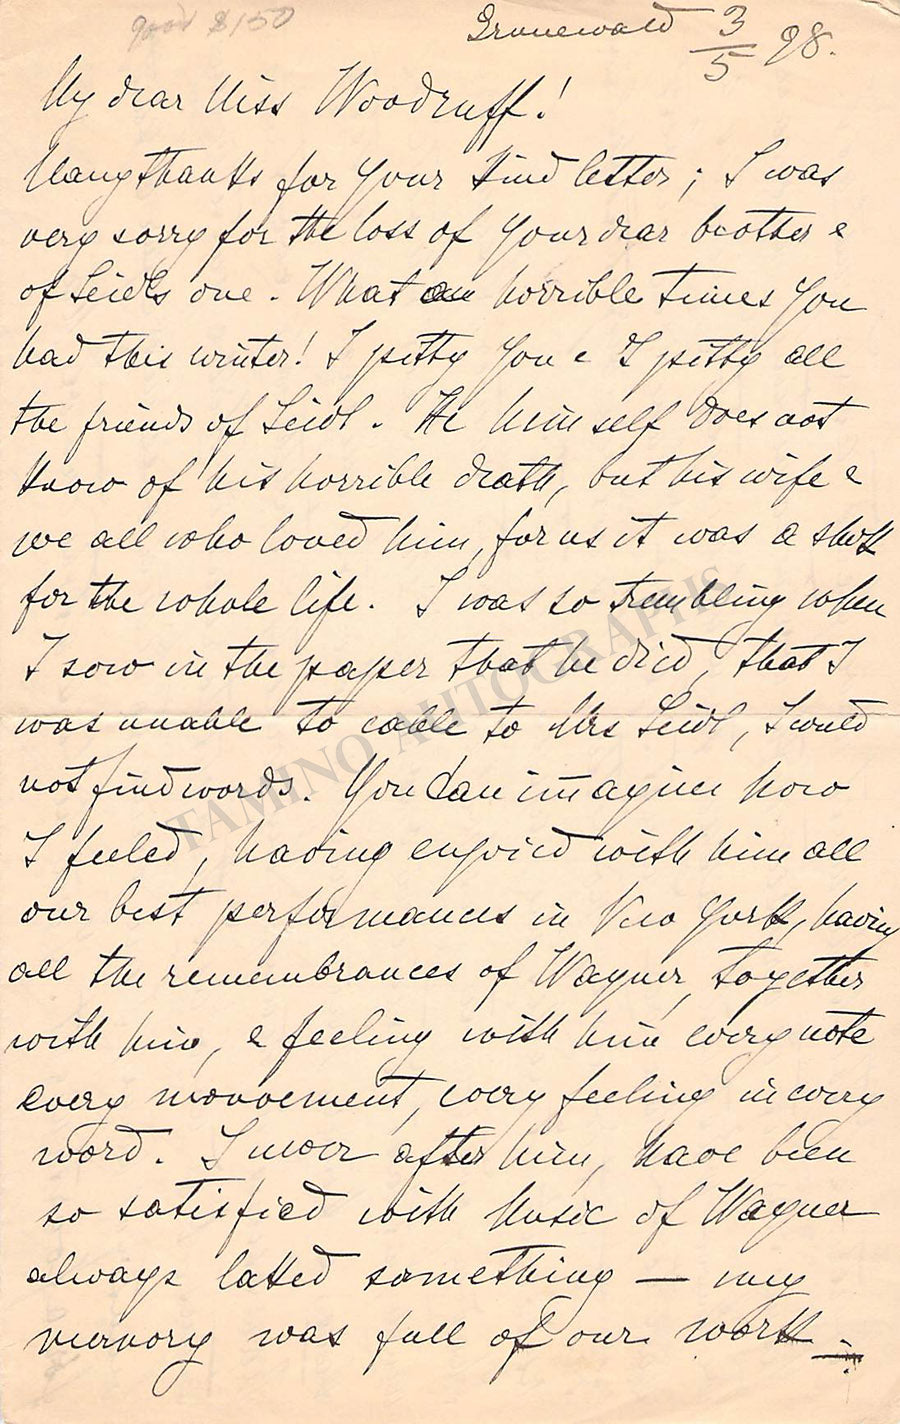 good $150
Grunewald 3/5 98.
My dear Miss Woodruff!
Many thanks for Your kind letter; I was
very sorry for the loss of Your dear brother e
of Seidls one. What an horrible times You
had this winter! I pitty You e I pitty all
the friends of Seidl. He himself does not
know of his horrible death, but his wife e
we all who loved him, for us it was a shok
for the whole life. I was so trembling when
I sow in the paper that he died, that I
was unable to cable to Mrs Seidl, I could
not find words. You can imagine how
I feeled, having enjoied with him all
our best performances in New York, having
all the remembrances of Wagner, together
with him, e feeling with him every note
every mouvement, every feeling in every
word. I never after him, have been
so satisfied with Music of Wagner
always lakked something — my
memory was full of our work
TAMINO AUTOGRAPHS